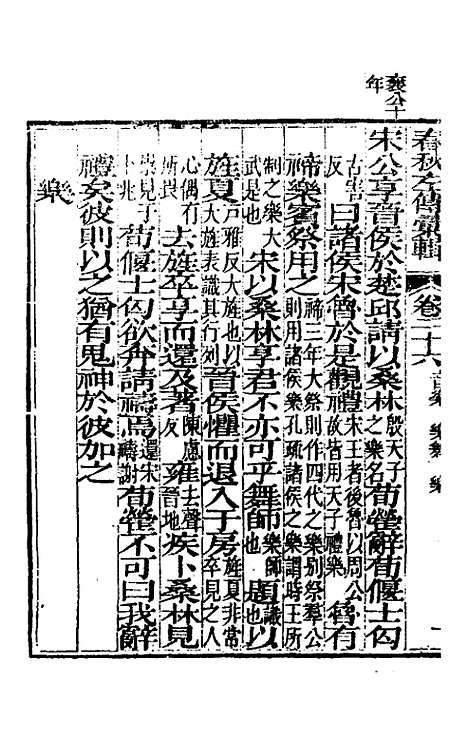 襄公十
年
春秋左傳彙輯 卷二十六 音樂 樂舞 樂 一
宋公享晉侯於楚邱請以桑林殷天子之樂名荀罃辭荀偃士匄
古害反曰諸侯宋魯於是觀禮宋王者後魯以周公故皆用天子禮樂魯有
禘樂賓祭用之禘三年大祭則作四代之樂別祭羣公則用諸侯樂孔疏諸侯之樂謂時王所
制之樂大武是也宋以桑林享君不亦可乎舞師樂師也題識也以
旌夏戶雅反大旌也以大旌表識其行列晉侯懼而退入于房旌夏非常卒見之人
心偶有所畏去旌卒享而還及著陳慮反雍去聲晉地疾卜桑林見
崇見于卜兆荀偃士匄欲奔請禱焉還宋禱謝荀罃不可曰我辭
禮矣彼則以之猶有鬼神於彼加之
樂